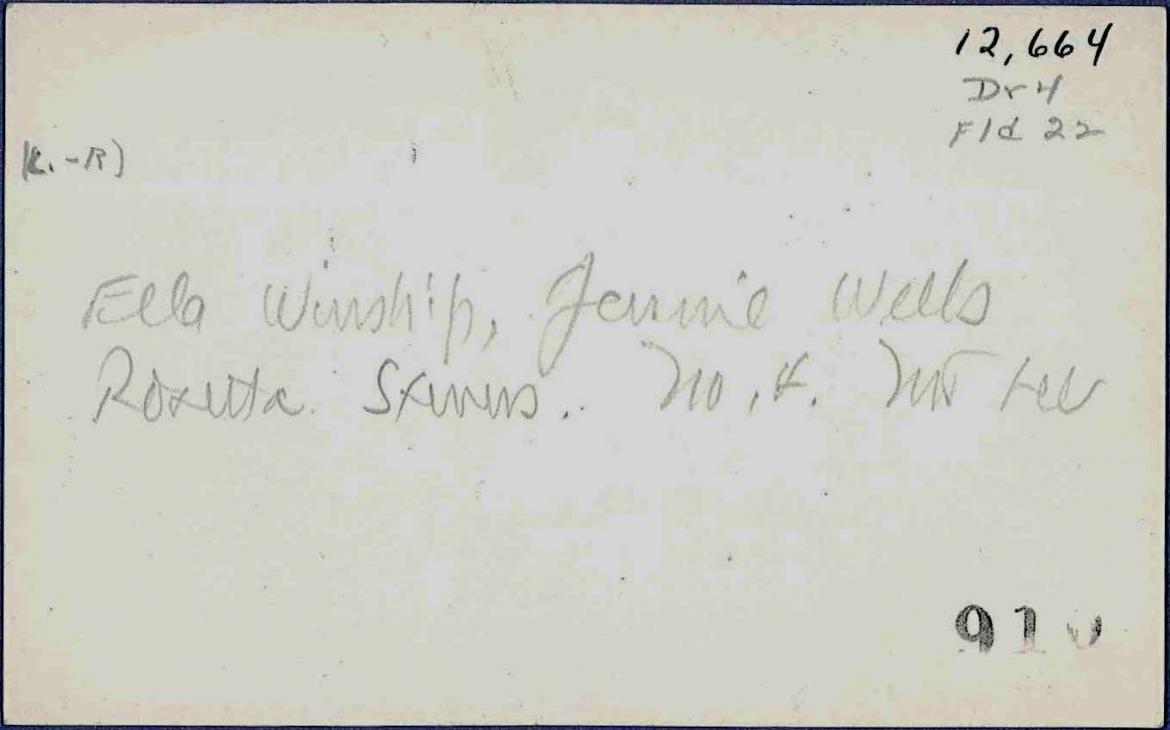 12,664
Dr 4
Fld 22
(L.-R)
Ella Winship, Jennie Wells
Rosetta Stevens. No. 4.
91